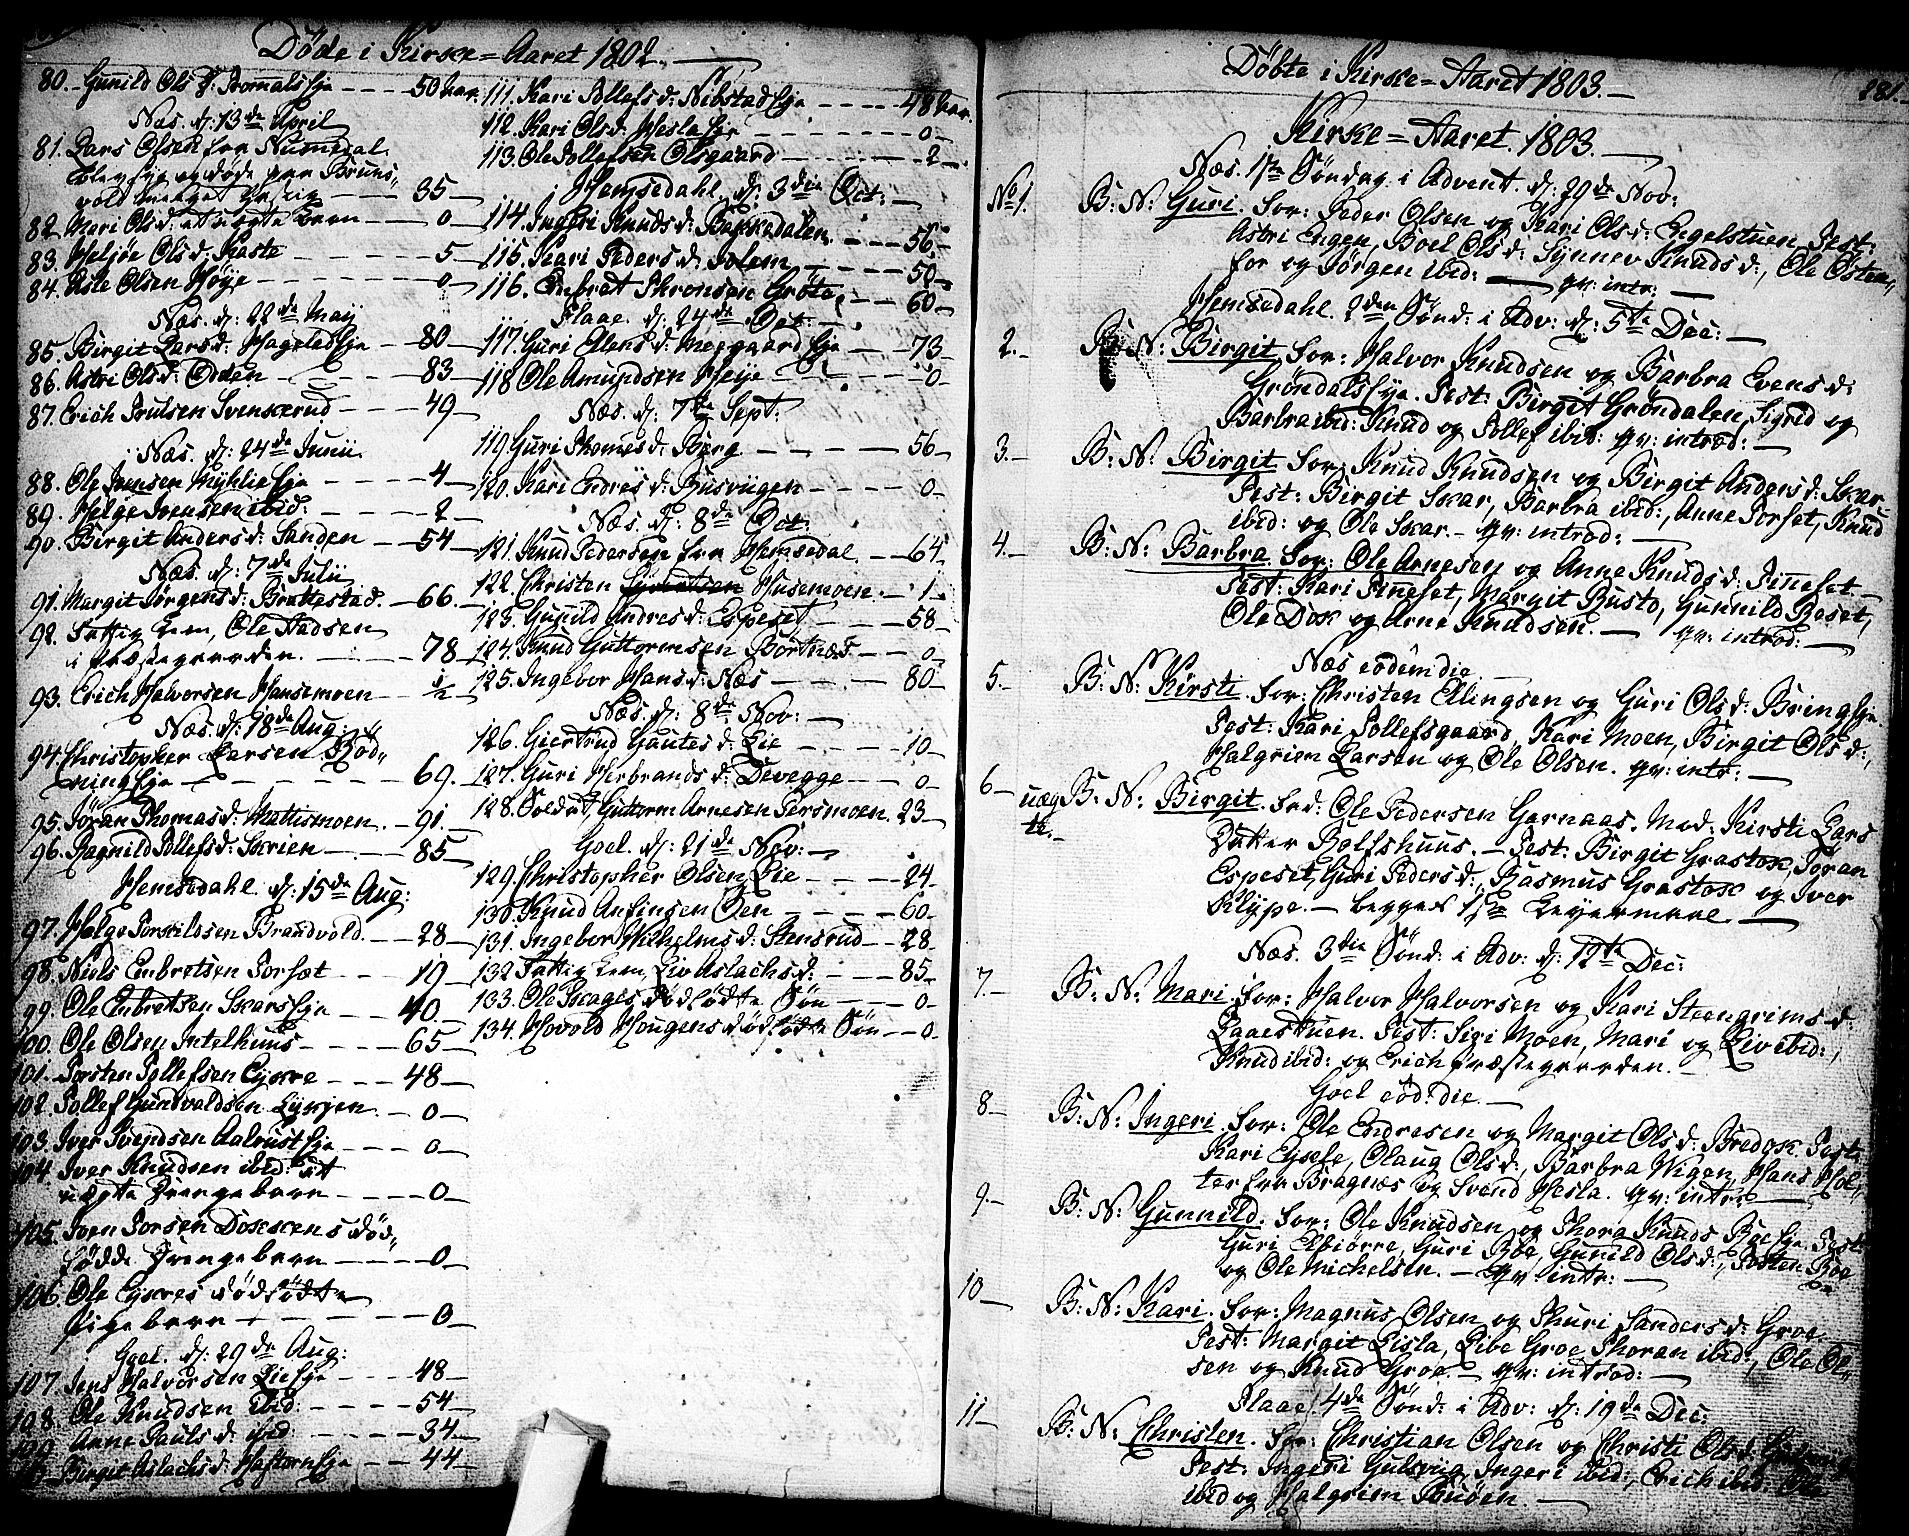 Døde i Kirke=Aaret 1802.
80. Gunild Ols d: Tromalseje 50 aar.
Næs. d: 13de April
81. Lars Olsen fra Nummedal
blev syg og døde paa Bruns,,
vold meget hastig 35
82. Mari Ols d: et uægte barn 0
83. Meljøe Ols d: Kaste 5
84. Asle Olsen Høye 0
Næs. d: 22de Maij
85. Birgit Lars d: Hagelad Eje 80
86. Astri Ols d: Odden 83
87. Erich Trulsen Svenkerud 49
Næs. d: 24de Junii
88. Ole Iversen Myhlie Eje 4
89. Helge Iversen ibid: 2
90. Birgit Anders d: Sanden 54
Næs. d: 7de Julii
91. Margit Jørgens d: Brattestad. 66.
92. Fattig Lem, Ole Aadsen
i Præstegaarden. 78
93. Erich Halvorsen Hansemoen ½
Næs. d: 18de Aug:
94. Christopher Larsen Rød,,
ning Eje 69.
95. Jøran Thomas d: Mattismoen. 91.
96. Ragnild Tollefs d: Skrien 85
Hemsedahl. d: 15de Aug:
97. Helge Torkildsen Brandvold 28
98. Niels Enbretsen Torset 19
99. Ole Enbretsen Skars Eje 40.
100. Ole Olsen Intelhuus 65
101. Torsten Tollefsen Eykre 48
102. Tollef Gundvaldsen Lykjen 0
103. Iver Svendsen Aalrust Eje 0
104. Iver Knudsen ibid: et
uægte Drengebarn 0
105. Iven Torsen Dokkens død,,
fødde Drengebarn 0
106. Ole Eykres dødfødte
Pigebarn 0
Goel. d: 29de Aug:
107. Jens Halvorsen Lie Eje 48
108. Ole Knudsen ibid: 54
109. Anne Pauls d: ibid: 34
Birget Aslachs d: Haftorn Eje 44
111. Kari Tollefs d: Nibstad Eje 48 aar.
112. Kari Ols d: Hesla Eje 0
113. Ole Tollefsen Olsgaard 2
Hemsedahl. d: 3die Oct:
114. Ingeri Knuds d: Bakkedalen 56
115. Kari Peders d: Tolem 50
116. Enbret Thronsen Grøte 60
Flaae. d: 24de Oct:
117. Guri Ellens d: Meegaard Eje 73
118 Ole Amundsen Heye 0
Næs. d: 7de Sept:
119 Guri Thomes d: Berg 56
120. Kari Endres d: Rusviigen 0
Næs. d: 8de Oct:
121. Knud Pedersen fra Hemsedal 64
122. Christen Husemoen 1
123. Gunild Andres d: Espeset 58
124. Knud Guttormsen Bortnæs 0
125. Ingebor Hans d: Næs 80
Næs. d: 8de Nov:
126. Giertrud Gautes d: Lie 10
127. Guri Herbrands d: Devegge 0
128. Soldat Guttorm Arnesen Persmoen. 23
Goel. d: 21de Nov:
129. Christopher Olsen Lie 24
130. Knud Anfinsen Øen 60
131. Ingebor Wilhelms d: Stensrud 28
132 Fattig Lem, Liv Aslachs d: 85
133. Ole Skages dødfødte Søn 0
134. Hovold Hougens dødfødte Søn 0
Døbte i Kirke=Aaret 1803.
281.
Kirke=Aaret. 1803.
Næs. 1ste Søndag i Advent. d: 29de Nov:
No 1. B: N: Guri. For: Peder Olsen og Kari Ols d: Engelstuen Test:
Astri Engen, Boel Ols d: Synnev Knuds d:, Ole Østen,,
for og Jørgen ibid: qv: intr:
Hemsedahl. 2den Sønd: i Adv: d: 5te Dec:
2. B: N: Birgit. For: Halvor Knudsen og Barbra Evens d:
Grøndals Eje. Test: Birgit Grøndalen, Sigrid og
Barbra ibid: Knud og Tollef ibid: qv: introd:
3. B: N: Birgit For: Knud Knudsen og Birgit Anders d: Skar
Test: Birgit Skar, Barbra ibid:, Anne Torset, Knud
ibid: og Ole Skar. qv: introd:
4. B: N: Barbra. For: Ole Arnesen og Anne Knuds d: Tinneset
Test: Kari Tinneset, Margit Rusto, Gunnild Reset,
Ole Dok og Arne Knudsen. qv: introd:
Næs eodem die
5. B: N: Kirsti. For: Christen Ellingsen og Guri Ols d: Bring Eje
Test: Kari Tollefsgaard, Kari Moen, Birgit Ols d:,
Halgrim Larsen og Ole Olsen. qv: intr:
6 uæg
te. B: N: Birgit. Fad: Ole Pedersen Garnaas. Mod: Kirsti Lars
Datter Rolfshuus. Test: Birgit Grastok, Jøran
Espeset, Guri Peders d:, Rasmus Grastok og Iver
Klype. begges 1ste Leyermaal
Næs. 3die Sønd: i Adv: d: 12te Dec:
7. B: N: Mari. For: Halvor Halvorsen og Kari Steengrims d:
Laaestuen. Test: Sigi Moen, Mari og Liv ibid:,
Knud ibid: og Erich Præstegaarden.
Goel eod: die
8 B: N: Ingeri. For: Ole Endresen og Margit Ols d: Bredok Test:
Kari Eykse, Olaug Ols d:, Barbra Wigen, Hans Hol,,
ter fra Bragnæs og Svend Hesla. qv: intr:
9 B: N: Gunnild. For: Ole Knudsen og Thora Knuds Roe Eje. Test:
Guri Elbiørre, Guri Roe, Gunild Ols d:, Tosten Roe
og Ole Michelsen. qv: intr:
10 B: N: Kari. For: Magnus Olsen og Thuri Sanders d: Groe
Test: Margit Lisla, Libe Groe Thoran ibid:, Ole Ol,,
sen og Knud Groe. qv: introd:
Flaae. 4de Sønd: i Adv: d: 19de Dec:
11 B: N: Christen. For: Christian Olsen og Christi Ols d:
Test: Ingeri Gulsvig, Ingeri ibid:, Erich ibid: Ole
ibid og Halgrim Truøen.